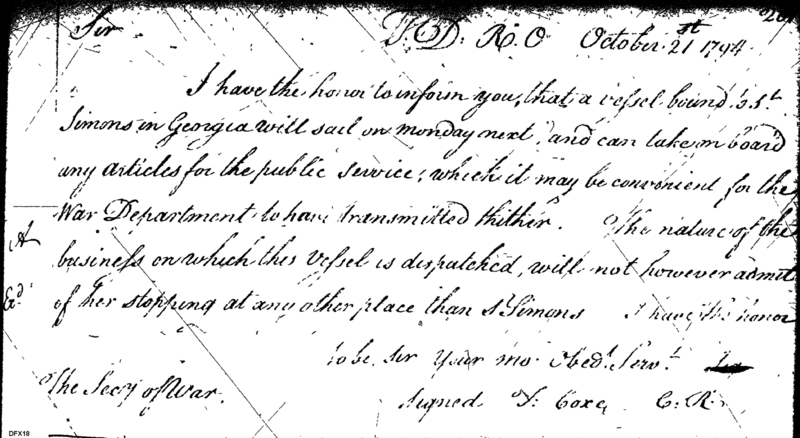 Sir T. D: R. O October 21st 1794.
I have the honor to inform you, that a vessel bound to St.
Simons in Georgia will sail on monday next, and can take on board
any articles for the public service, which it may be convenient for the
War Department to have transmitted thither. The nature of the
business on which this vessel is dispatched, will not however admit
of her stopping at any other place than St Simons I have the honor
to be Sir Your mo. Obedt. Servt.
The Secy of War.
signed T: Coxe, C. R.
A
Exd.
DFX18